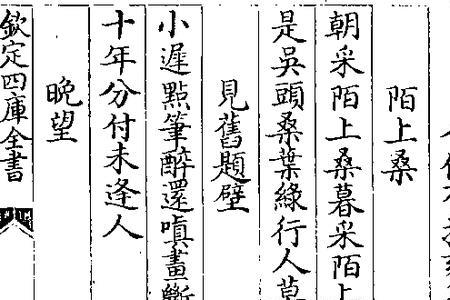 陌上桑
朝采陌上桑暮采陌上
是吳頭桑葉綠行人
見舊題壁
小遲點筆醉還嗔畫斷
十年分付未逢人
晚望
欽定四庫全書